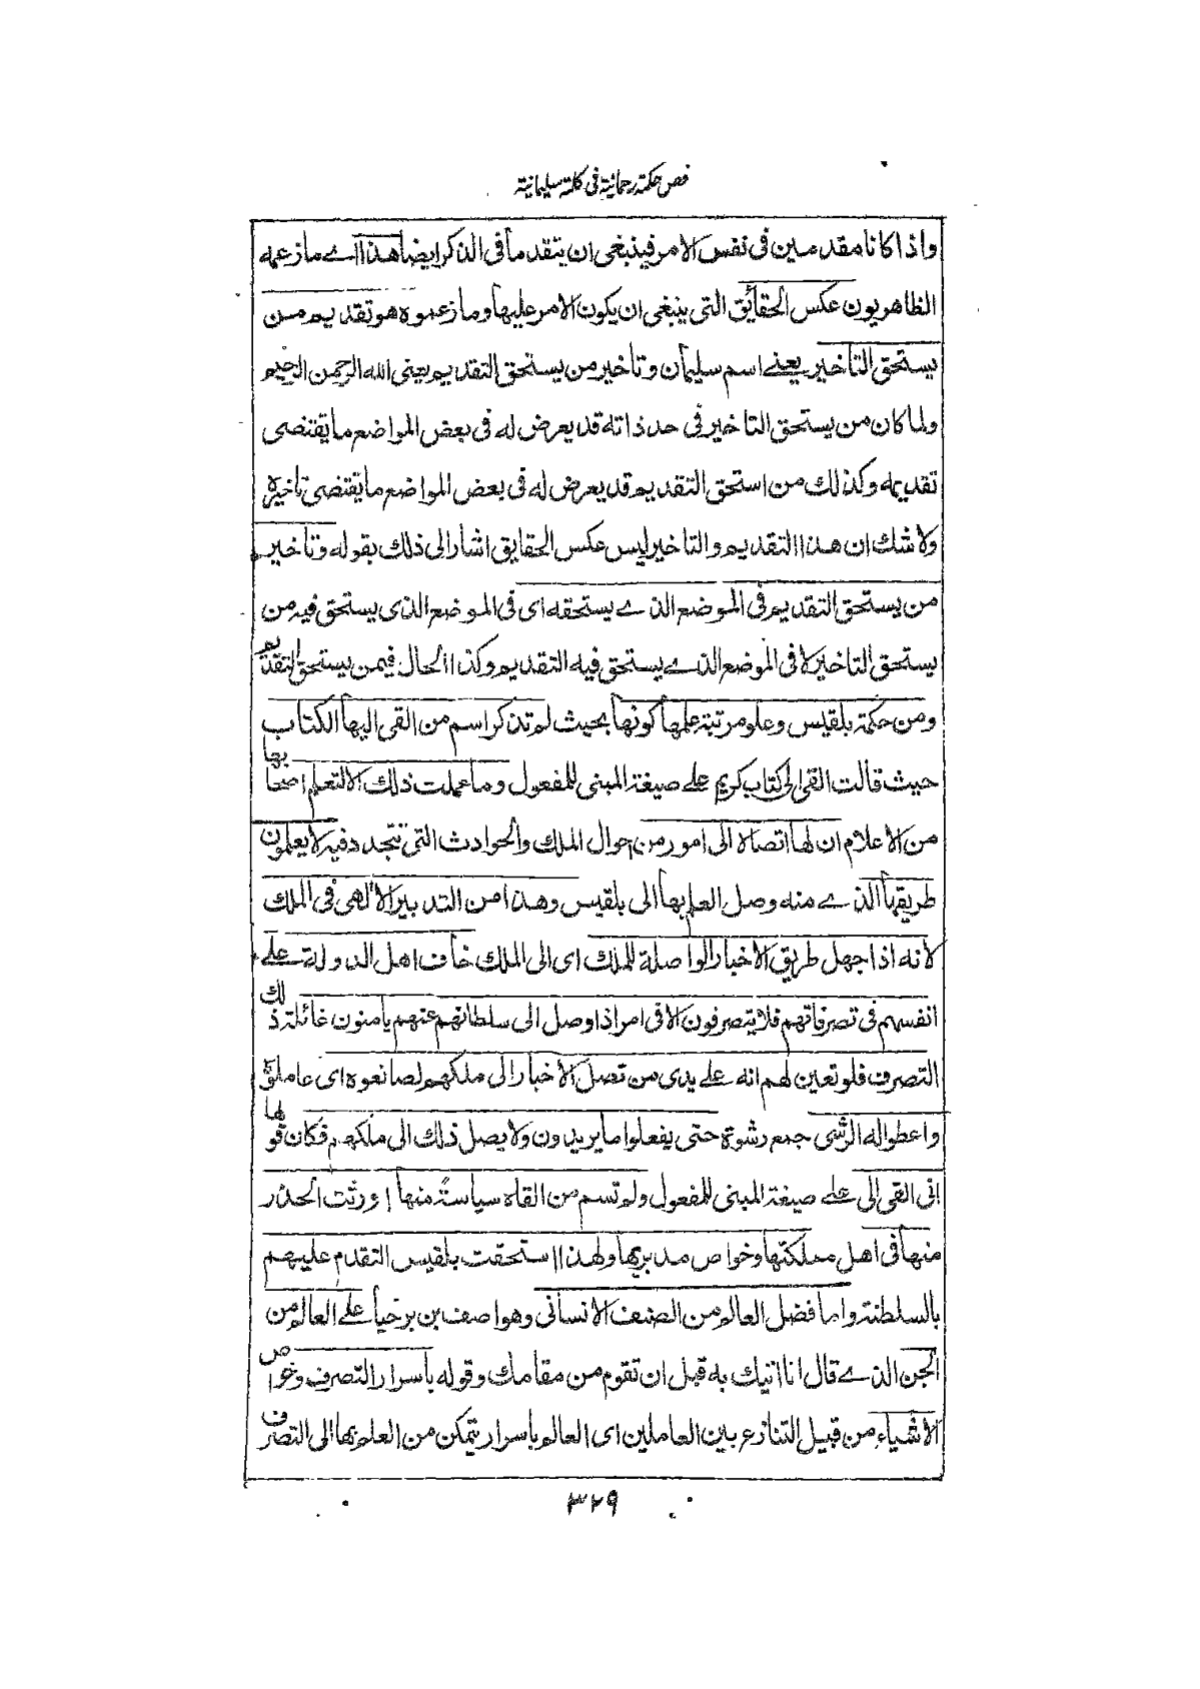 فص حكمة رحمانية فى كلمة سليمانية
واذا كانا مقدمين فى نفس الامر فينبغى ان يتقدما فى الذكر ايضا هذا اے ما زعمه
الظاهريون عكس الحقائق التى ينبغى ان يكون الامر عليها وما زعموه هو تقديم من
يستحق التاخير يعنے اسم سليمان وتاخير من يستحق التقديم يعنى الله الرحمن الرحيم
ولما كان من يستحق التاخير فى حد ذاته قد يعرض له فى بعض المواضع ما يقتضى
تقديمه وكذلك من استحق التقديم قد يعرض له فى بعض المواضع ما يقتضى تاخيره
ولا شك ان هذا التقديم والتاخير ليس عكس الحقايق اشار الى ذلك بقوله وتاخير
من يستحق التقديم فى الموضع الذے يستحقه اى فى الموضع الذى يستحق فيه من
يستحق التاخير لا فى الموضع الذے يستحق فيه التقديم وكذا الحال فيمن يستحق التقديم
ومن حكمة بلقيس وعلو مرتبة علمها كونها بحيث لم تذكر اسم من القى اليها الكتاب
حيث قالت القى الى كتاب كريم علے صيغة المبنى للمفعول وما عملت ذلك الا لتعلم اصحابها
من الاعلام ان لها اتصالا الى امور من احوال الملك والحوادث التى تتجدد فيه لا يعلمون
طريقها الذے منه وصل العلم بها الى بلقيس وهذا من التدبير الالهى فى الملك
لانه اذا جهل طريق الاخبار الواصلة للملك اى الى الملك خاف اهل الدولة علے
انفسهم فى تصرفاتهم فلا يتصرفون الا فى امر اذا وصل الى سلطانهم عنهم يامنون غائلة ذلك
التصرف فلو تعين لهم انه علے يدى من تصل الاخبار الى ملكهم لصانعوه اى عاملوه
واعطوا له الرشى جمع رشوة حتى يفعلوا ما يريدون ولا يصل ذلك الى ملكهم فكان قولها
انى القى الى علے صيغة المبنى للمفعول ولم تسم من القاه سياسة منها اورثت الحذر
منها فى اهل مملكتها وخواص مدبريها ولهذا استحقت بلقيس التقدم عليهم
بالسلطنة واما فضل العالم من الصنف الانسانى وهو اصف بن برخيا علے العالم من
الجن الذے قال انا اتيك به قبل ان تقوم من مقامك وقوله باسرار التصرف وخواص
الاشياء من قبيل التنازع بين العاملين اى العالم باسرار يتمكن من العلم بها الى التصرف
٣٢٩